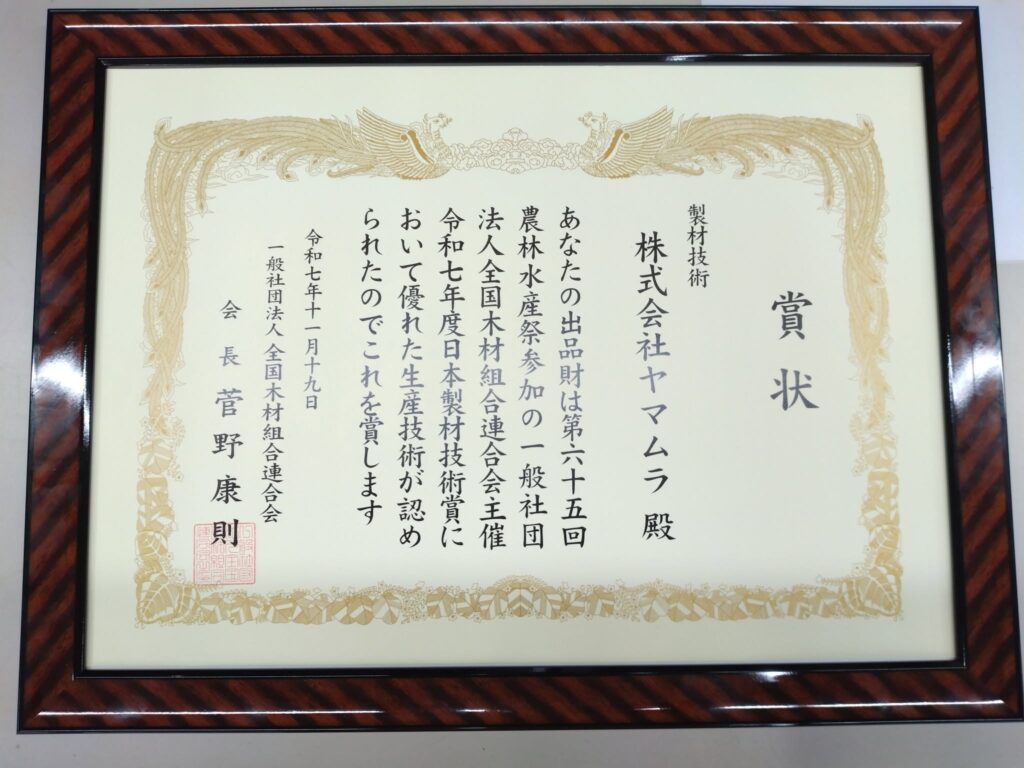 賞状
製材技術
株式会社ヤマムラ 殿
あなたの出品財は第六十五回
農林水産祭参加の一般社団
法人全国木材組合連合会主催
令和七年度日本製材技術賞に
おいて優れた生産技術が認め
られたのでこれを賞します
令和七年十一月十九日
一般社団法人 全国木材組合連合会
会長 菅野康則